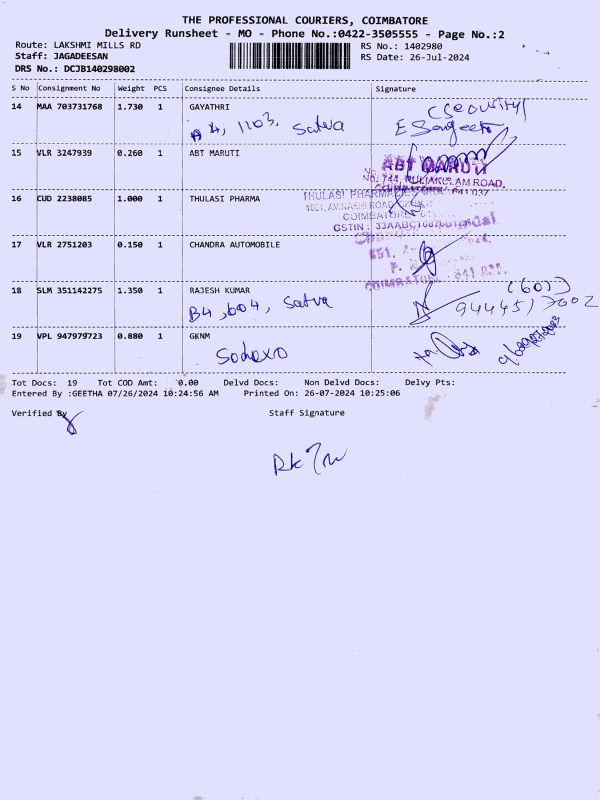 THE PROFESSIONAL COURIERS, COIMBATORE
Delivery Runsheet - MO - Phone No.:0422-3505555 - Page No.:2
Route: LAKSHMI MILLS RD
RS No.: 1402980
Staff: JAGADEESAN
RS Date: 26-Jul-2024
DRS No.: DCJB140298002
S No Consignment No Weight PCS Consignee Details Signature
14 MAA 703731768 1.730 1 GAYATHRI
(Security)
A4, 1103, Satva
15 VLR 3247939 0.260 1 ABT MARUTI
ABT MARUTI
No. 744, PULIAKULAM ROAD,
16 CUD 2238085 1.000 1 THULASI PHARMA
THULASI PHARMA
COIMBATORE
GSTIN : 33AABCT
17 VLR 2751203 0.150 1 CHANDRA AUTOMOBILE
COIMBATORE
18 SLM 351142275 1.350 1 RAJESH KUMAR
B4, 604, Satva
19 VPL 947979723 0.880 1 GKNM
Sodexo
Tot Docs: 19 Tot COD Amt: 0.00 Delvd Docs: Non Delvd Docs: Delvy Pts:
Entered By :GEETHA 07/26/2024 10:24:56 AM Printed On: 26-07-2024 10:25:06
Verified By
Staff Signature